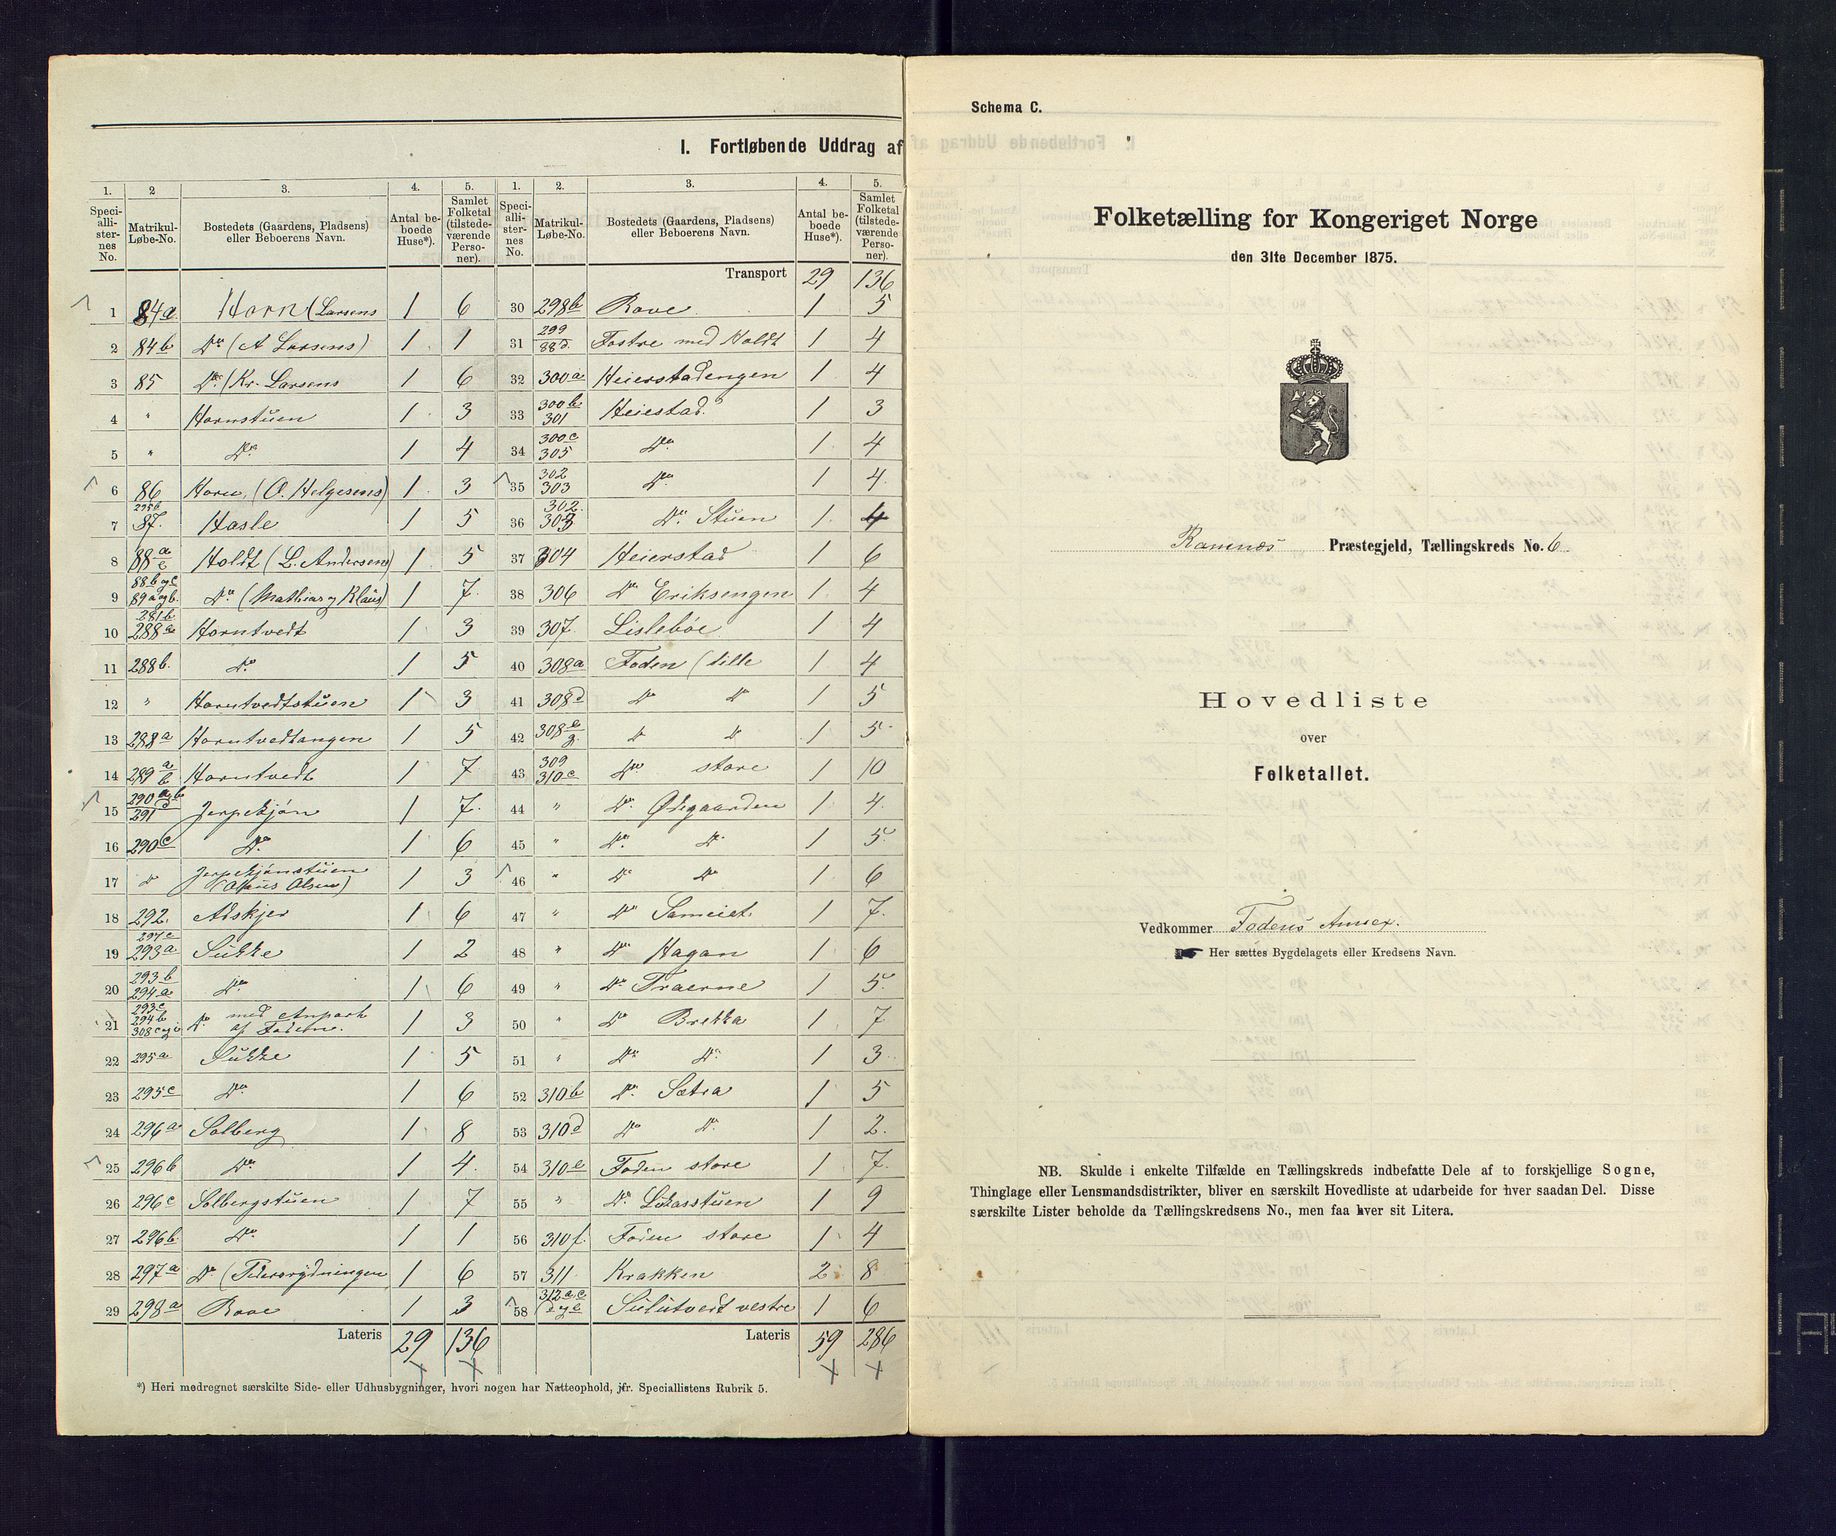 I. Fortløbende Uddrag af
1. 2 3. 4. 5. 1. 2. 3. 4. 5.
Speciallisternes No. Matrikul-Løbe-No. Bostedets (Gaardens, Pladsens) eller Beboerens Navn. Antal beboede Huse*). Samlet Folketal (tilstedeværende Personer). Speciallisternes No. Matrikul-Løbe-No. Bostedets (Gaardens, Pladsens) eller Beboerens Navn. Antal beboede Huse*). Samlet Folketal (tilstedeværende Personer).
Transport 29 136
1 84a Horn (Larsens 1 6
2 84b Do (A Larsens) 1 1
3 85 Do (Kr. Larsens 1 6
4 " Hornstuen 1 3
5 " Do 1 4
6 86 Horn (O. Helgesens) 1 3
7 295b 87. Hasle 1 5
8 88a Holdt (L. Andersens) 1 5
9 88b og c 89a og b. Do (Mathias og Klaus) 1 7.
10 281b 288a Horntvedt 1 3
11 288b. Do 1 5
12 " Horntvedtstuen 1 3
13 288a Horntvedtangen 1 5
14 289 a b Horntvedt 1 7
15 290 a og b d 291 Jerpekjøn 1 7.
16 290c Do 1 6
17 Do Jerpekjønstuen Olsen) 1 3
18 292. Adskjer 1 6
19 294c 293a Sukke 1 2
20 293b 294a Do 1 6
21 293c 294b 308c og i Do med Anpart af Foden. 1 3
22 295a Sukke 1 5
23 295c Do 1 6
24 296a Solberg 1 8
25 296b Do 1 4.
26 296c Solbergstuen 1 7
27 296b. Do 1 1
28 297a Do 1 6
29 298a Rove 1 3
Lateris 29 136
30 298b Rove 1 5
31 299 88d. Fostre med Holdt 1 4
32 300a Heierstadengen 1 4
33 300b 301 Heiestad. 1 3
34 300c 305 Do 1 4
35 302 303 Do 1 4.
36 302. 303 Do Stuen 1 4
37 304 Heierstad 1 6
38 306 Do Eriksengen 1 4
39 307. Lislebøe 1 4
40 308a Foden (lille 1 4
41 308d Do Do 1 5
42 308e g. Do Do 1 5
43 309 310c Do store 1 10
44 " Do Ødegaarden 1 4.
45 " Do Do 1 5.
46 " Do Do 1 6
47 " Do Sameiet 1 7.
48 " Do Hagan 1 6
49 " Do Traerne 1 5.
50 " Do Brekka 1 7
51 " Do Do 1 3
52 310b Do Sætra 1 5
53 310d Do Do 1 2.
54 310e Foden store 1 7.
55 " Do Lukasstuen 1 9
56 310f. Foden store 1 4
57 311 Krakken 2 8
58 312a,c d og e Sulutvedt vestre 1 6
Lateris 59 286
*) Heri medregnet særskilte Side- eller Udhusbygninger, hvori nogen har Natteophold, jfr. Speciallistens Rubrik 5.
Schema C.
Folketælling for Kongeriget Norge
den 31te December 1875.
Ramnæs Præstegjeld, Tællingskreds No. 6.
Hovedliste
over
Folketallet.
Vedkommer Fodens Annex.
Her sættes Bygdelagets eller Kredsens Navn.
NB. Skulde i enkelte Tilfælde en Tællingskreds indbefatte Dele af to forskjellige Sogne,
Thinglage eller Lensmandsdistrikter, bliver en særskilt Hovedliste at udarbeide for hver saadan Del. Disse
særskilte Lister beholde da Tællingskredsens No., men faa hver sit Litera.